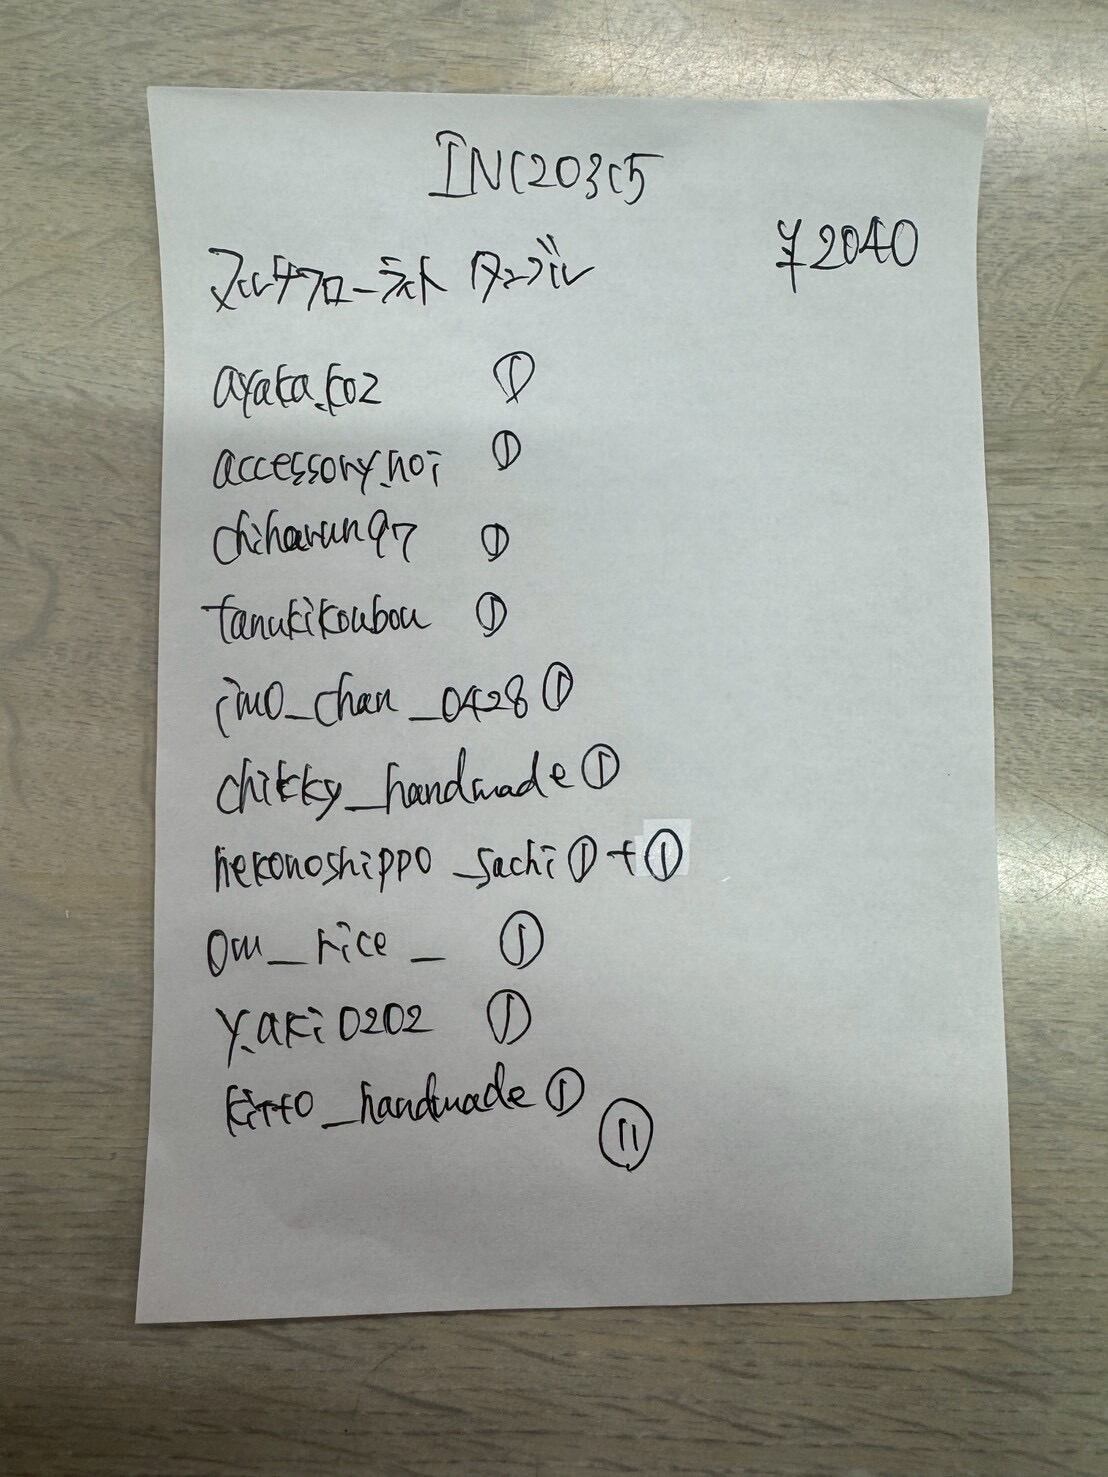 INC20305
¥2040
マルチフローライト タンブル
ayaka.koz ①
accessory.noi ①
chiharun97 ①
tanukikoubou ①
imo_chan_0428 ①
chikky_handmade ①
nekonoshippo_sachi ①+①
om_rice_ ①
y.aki0202 ①
kitto_handmade ①
⑪